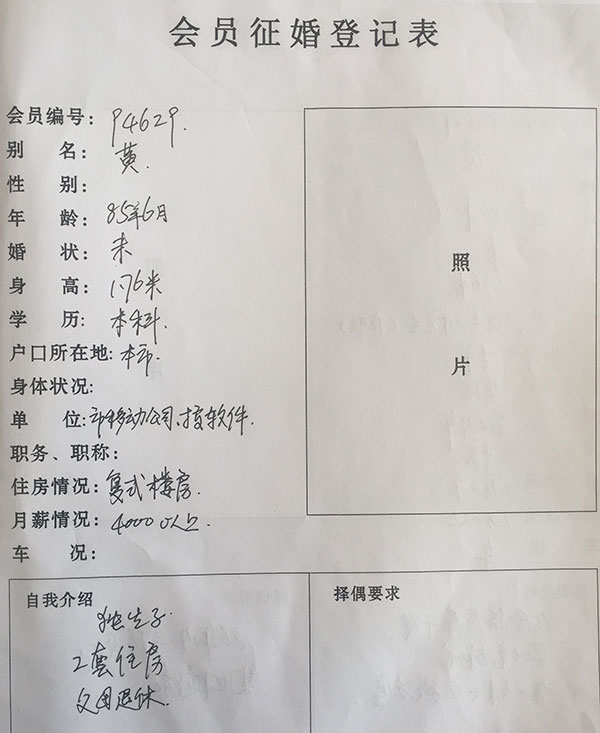 会员征婚登记表
会员编号：94629.
别 名：黄.
性 别：
年 龄：85年6月
婚 状：未
身 高：1.76米
学 历：本科.
户口所在地：本市.
身体状况：
单 位：市移动公司、搞软件.
职务、职称：
住房情况：复式楼房.
月薪情况：4000以上.
车 况：
照
片
自我介绍
独生子.
2套住房
父母退休.
择偶要求